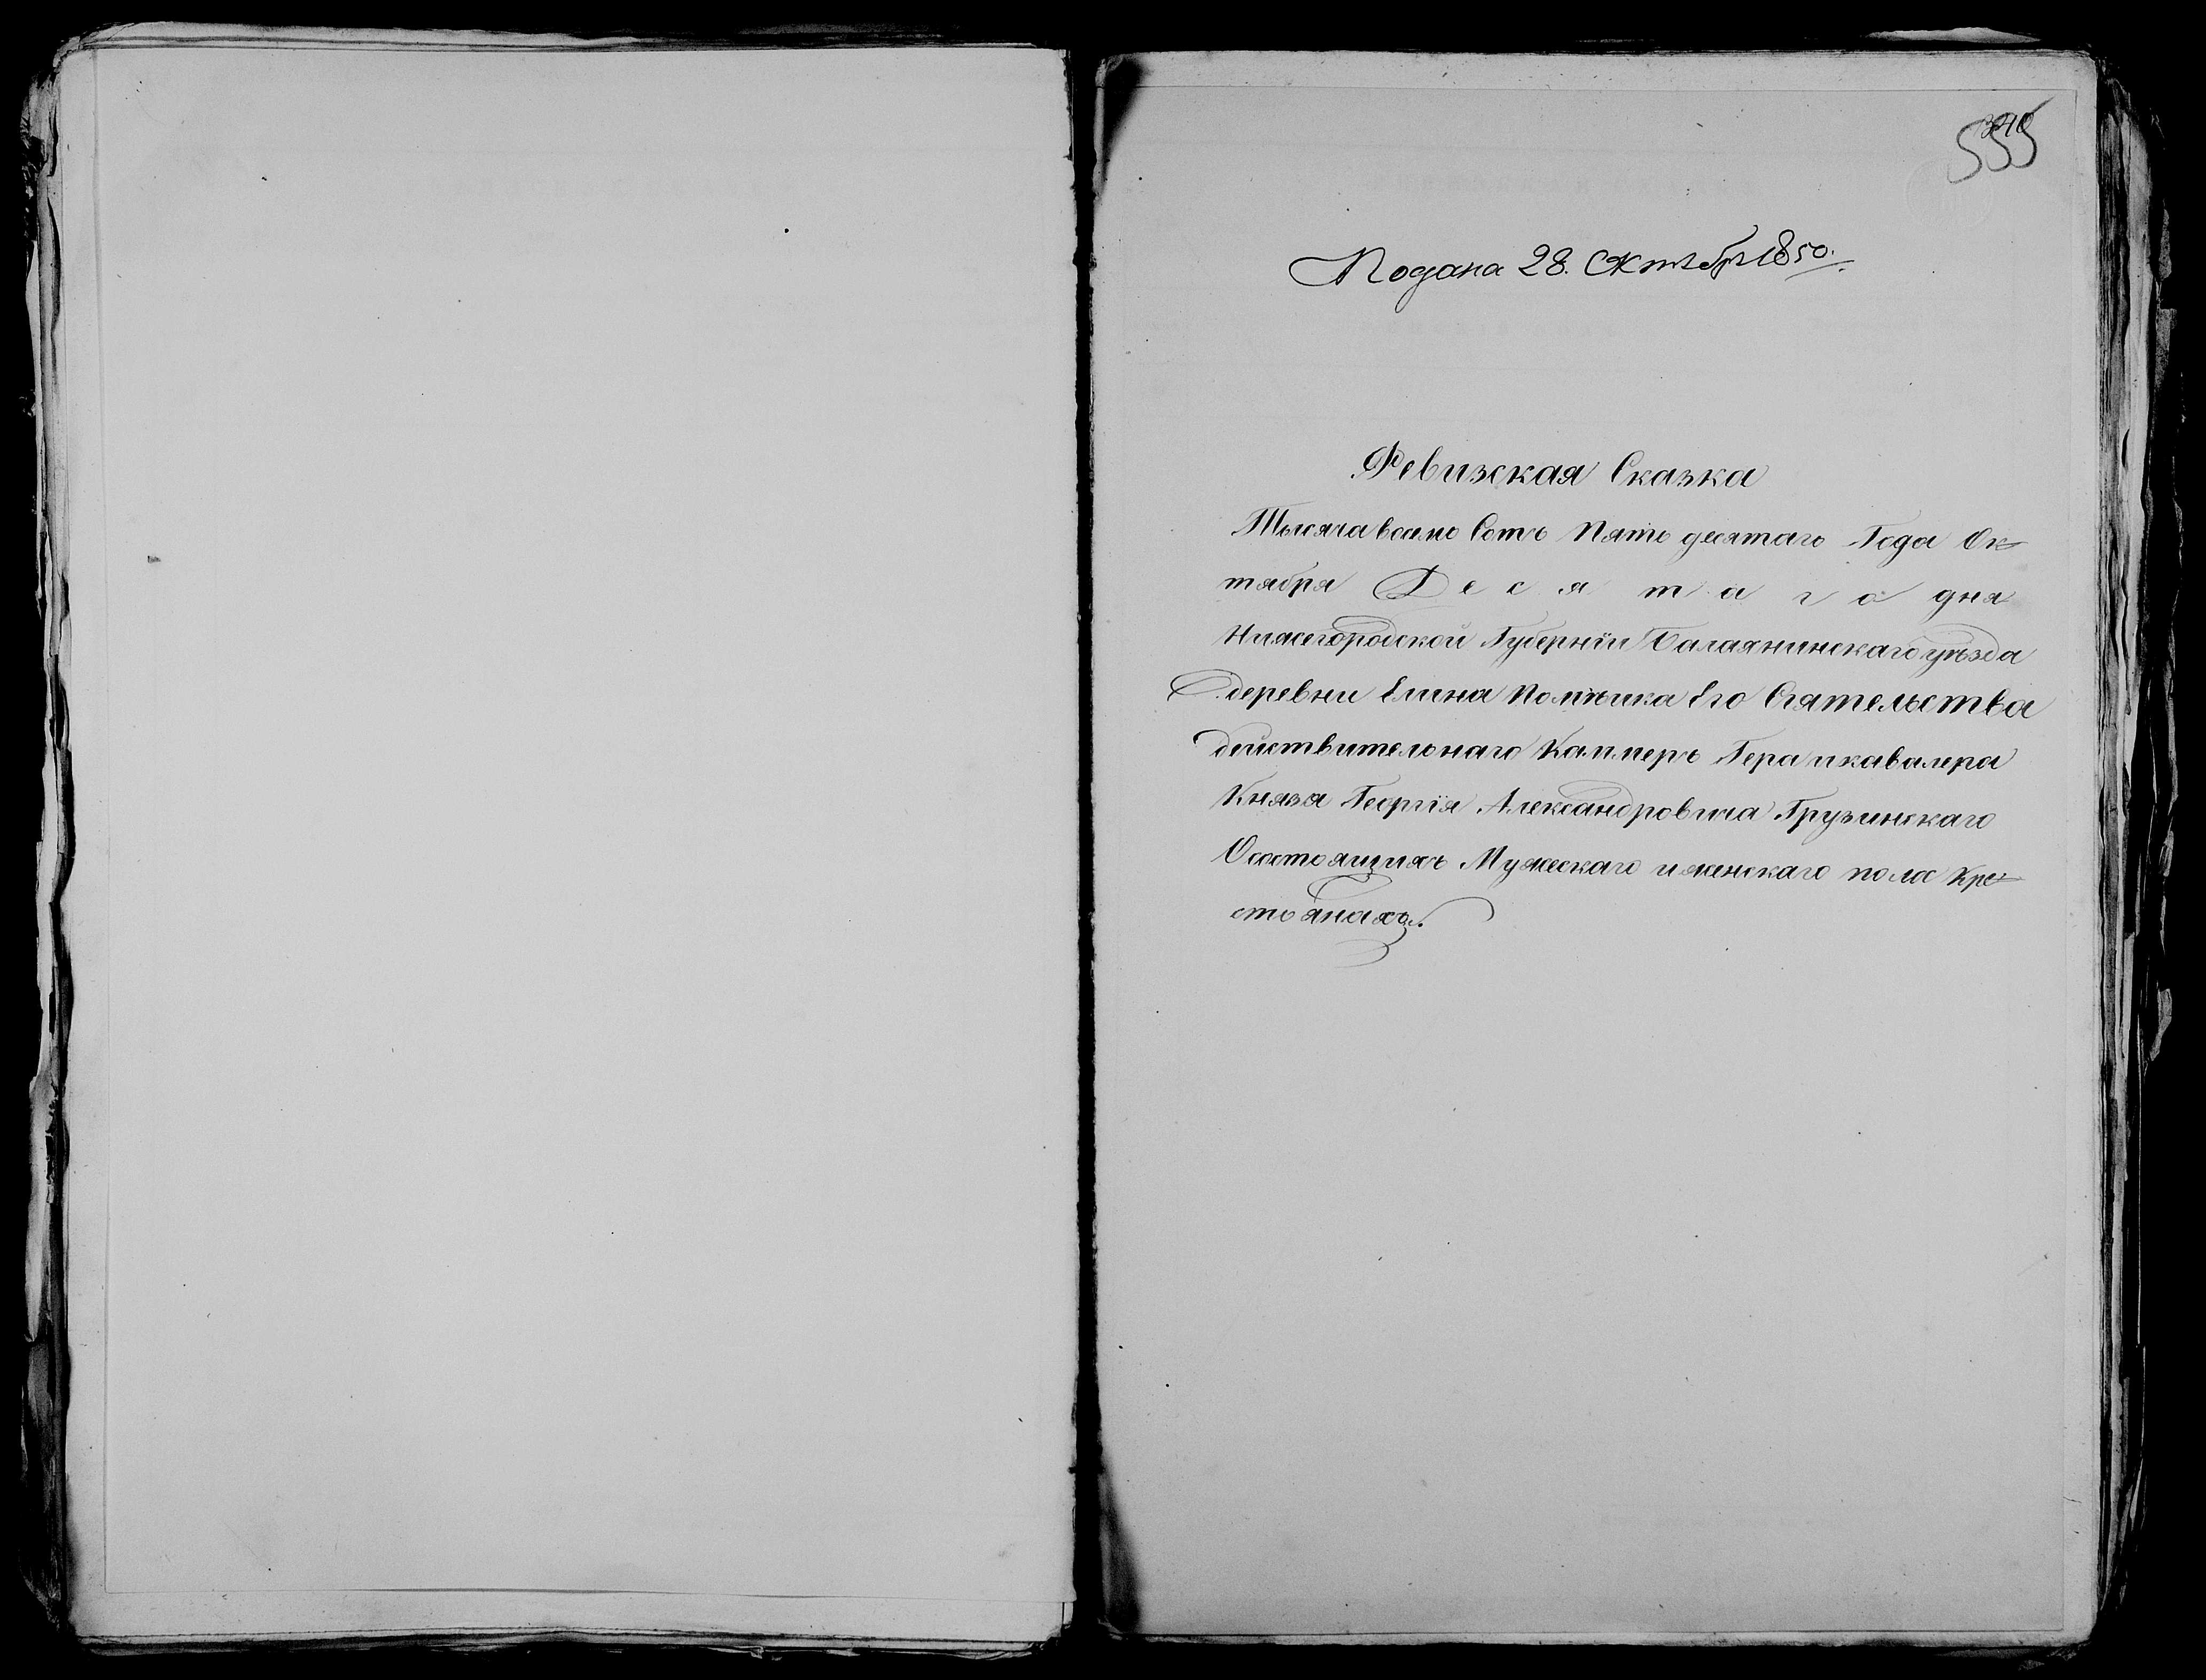 555
Подана 28. Октября 1850.
Ревизская Сказка
Тысяча восмь Сотъ Пять десятаго Года Ок-
тября Десятаго дня
Нижегородской Губернïи Балахнинскаго уѣзда
деревни Елина Помѣщика Его Сіятельства
действительнаго Каммеръ Гера икавалера
Князя Георгïя Александровича Грузинскаго
Осостоящихъ Мужескаго иженскаго пола Кре-
стьянахъ.